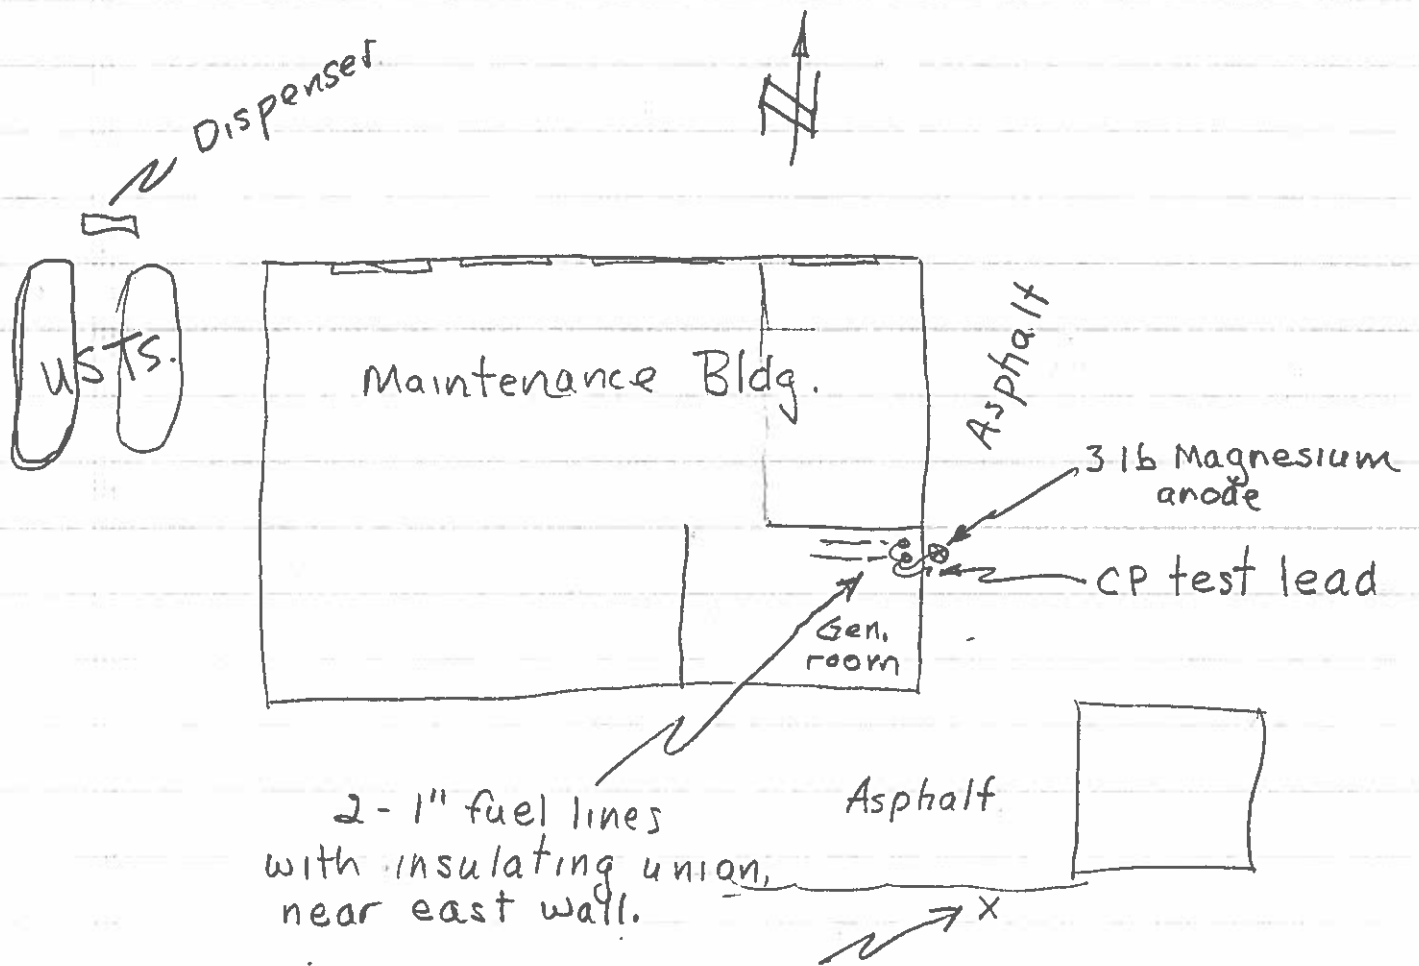 Dispenser
N
USTS.
Maintenance Bldg.
Asphalt
3 lb Magnesium
anode
CP test lead
Gen.
room
2-1" fuel lines
with insulating union,
near east wall.
Asphalt
X